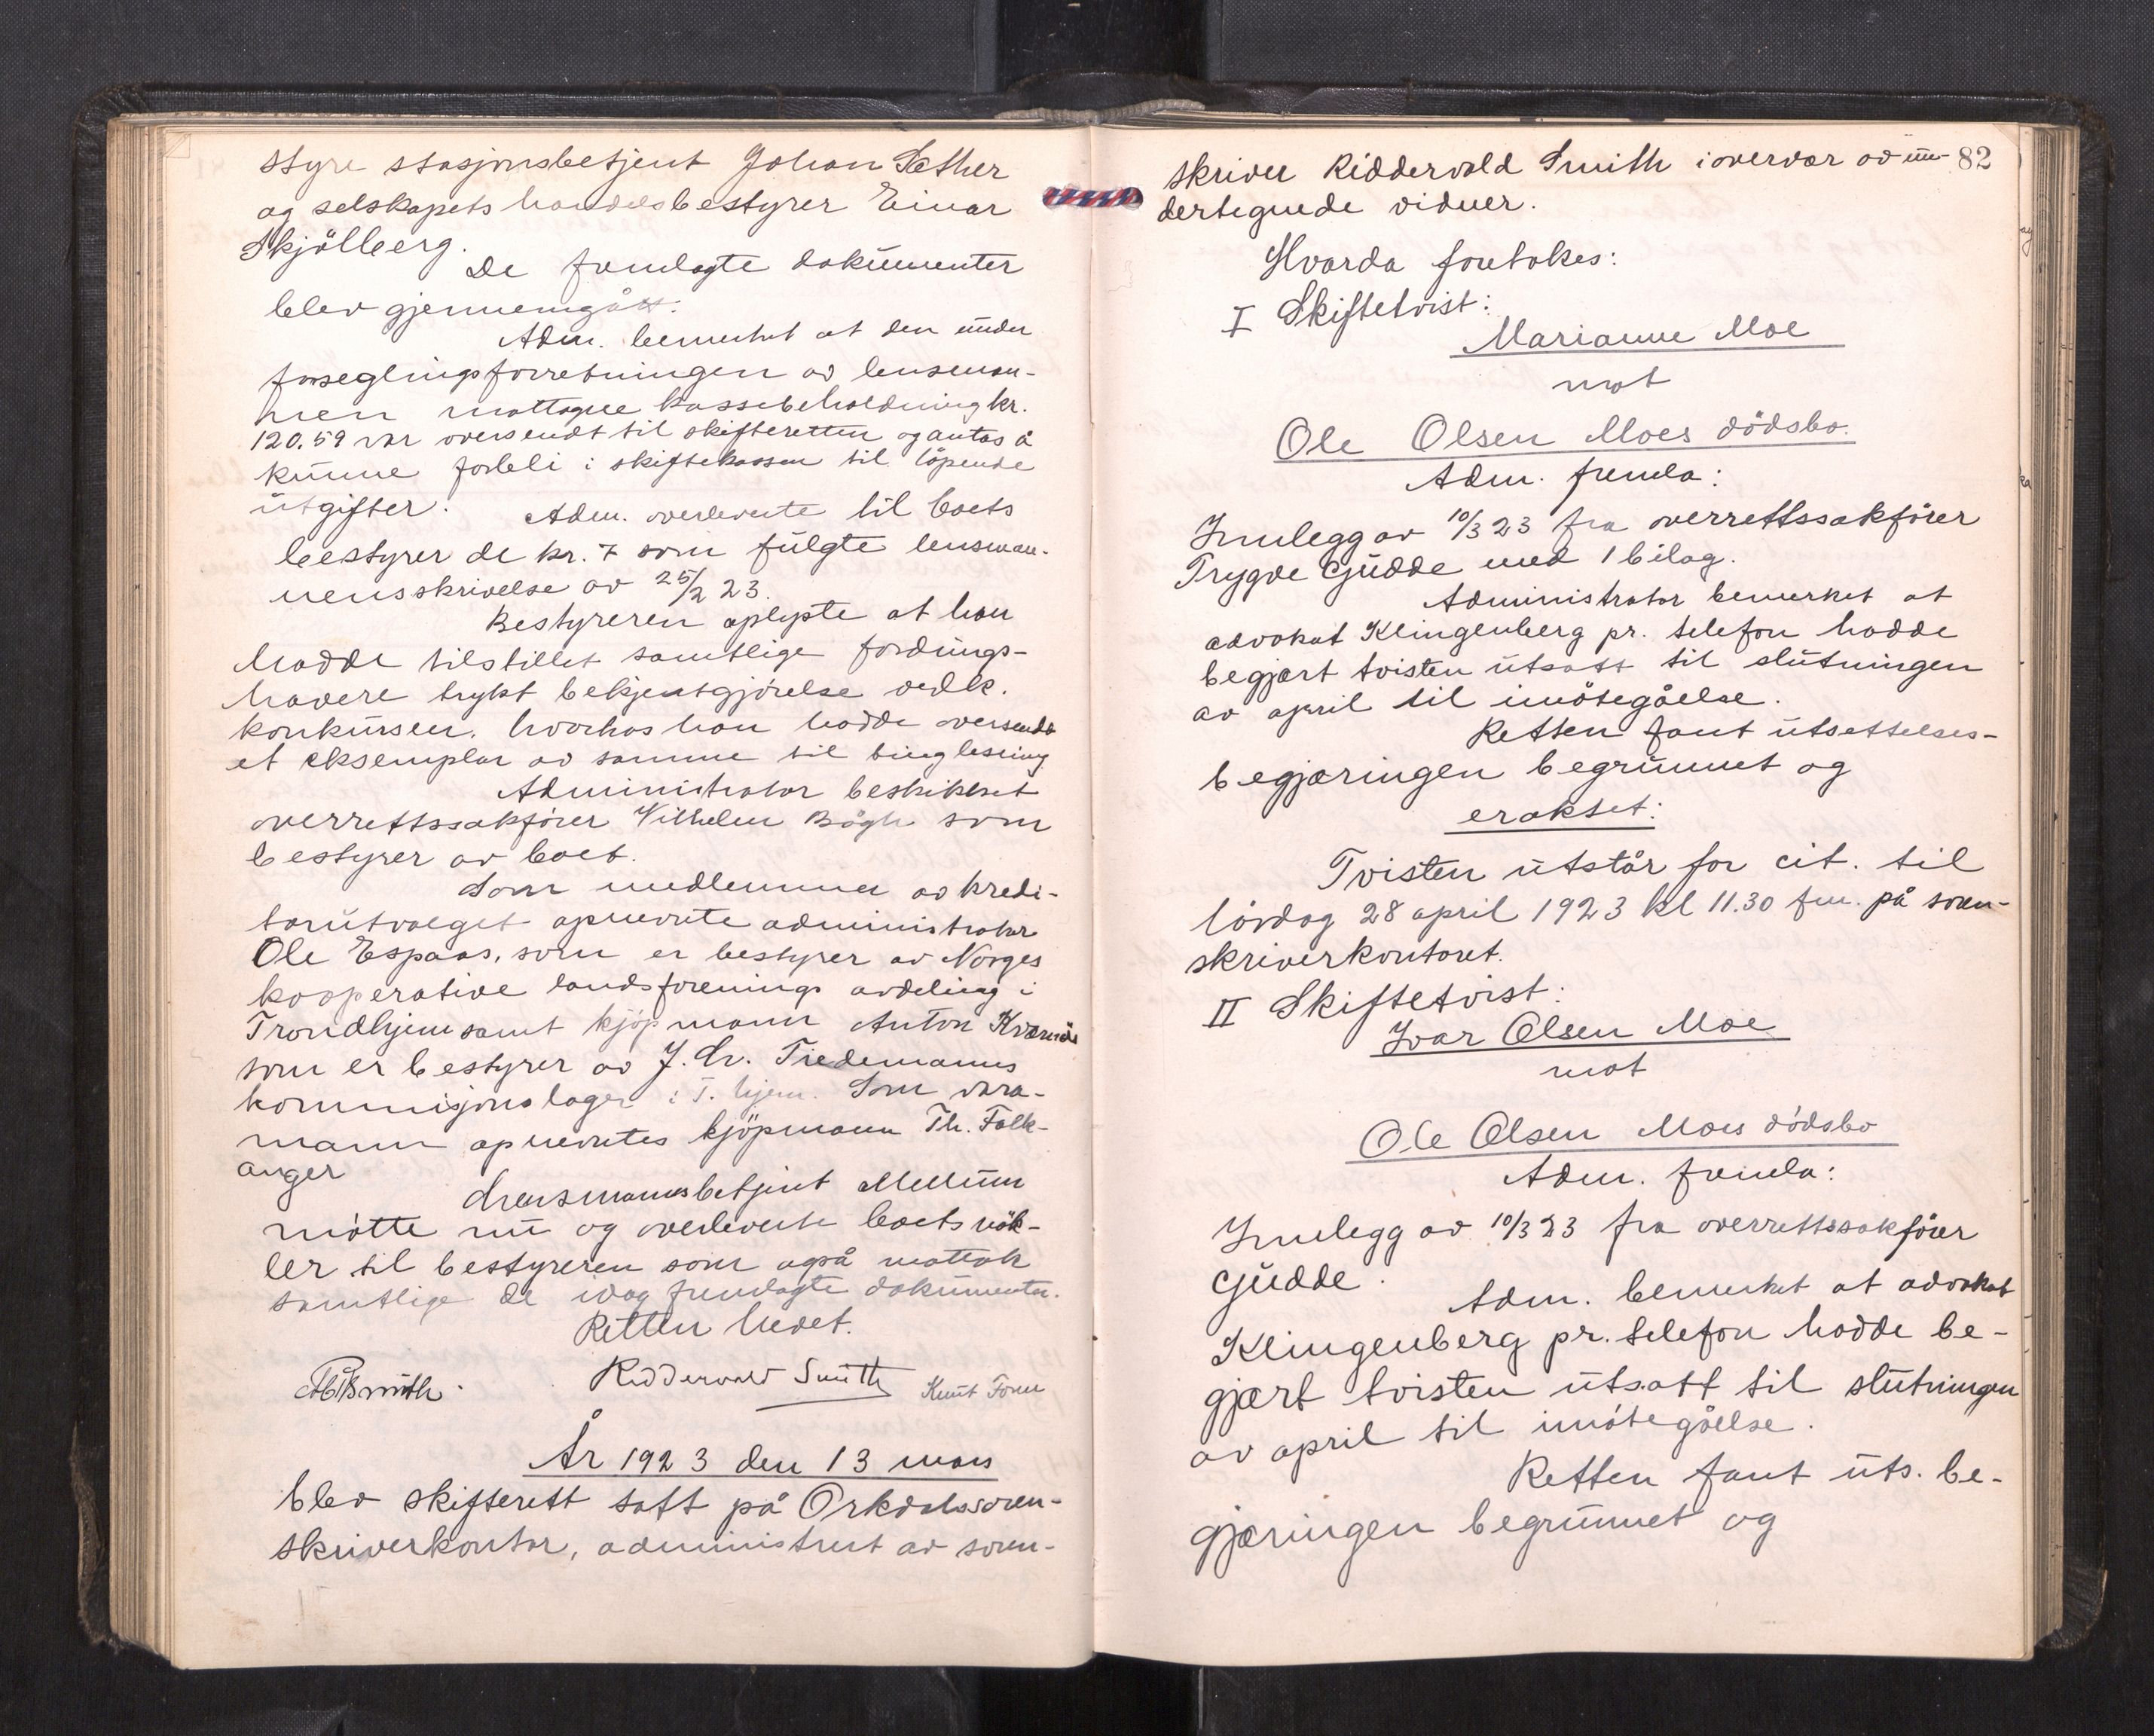 styre stasjonsbetjent Johan Sæther
og selskapets handelsbestyrer Einar
Skjölberg.
De fremlagte dokumenter
blev gjennemgått.
Adm. bemerket at den under
forseglingsforretningen av lensman-
nen mottagne kassebeholdning kr.
120.59 var oversendt til skifteretten og antas å
kunne forbli i skiftekassen til löpende
utgifter.
Adm. overleverte til boets
bestyrer de kr. 7 som fulgte lensman-
nens skrivelse av 25/2 23.
Bestyreren oplyste at han
hadde tilstillet samtlige fordrings-
havere trykt bekjentgjörelse vedk.
konkursen, hvorhos han hadde oversendt
et eksemplar av samme til tinglesning
Administrator beskikket
overrettssakförer Vilhelm Bögh som
bestyrer av boet.
Som medlemmer av kredi-
torutvalget opnevnte administrator
Ole Espaas, som er bestyrer av Norges
kooperative landsforenings avdeling i
Trondhjem samt kjöpmann Anton
som er bestyrer av J. Chr. Tiedemanns
kommisjonslager i T.hjem. Som vara-
mann opnevntes kjöpmann Th. Falk-
anger
Lensmannsbetjent Mellum
mötte nu og overleverte boets nök-
ler til bestyreren som også mottok
samtlige de idag fremlagte dokumenter.
Retten hevet.
Ridderwold Smith
Knut
År 1923 den 13 mars
blev skifterett satt på Orkdal soren-
skriverkontor, administrert av soren-
82
skriver Riddervold Smith i overvær av un-
dertegnede vidner.
Hvorda foretokes:
I Skiftetvist:
Marianne Moe
mot
Ole Olsen Moes dödsbo.
Adm. fremla:
Innlegg av 10/3 23 fra overrettssakförer
Trygve Gudde med 1 bilag.
Administrator bemerket at
advokat Klingenberg pr. telefon hadde
begjært tvisten utsatt til slutningen
av april til imötegåelse.
Retten fant utsettelses-
begjæringen begrunnet og
erakset:
Tvisten utstår for cit. til
lördag 28 april 1923 kl 11.30 fm. på soren-
skriverkontoret.
II Skiftetvist:
Ivar Olsen Moe
mot
Ole Olsen Moes dödsbo
Adm. fremla:
Innlegg av 10/3 23 fra overrettssakförer
Gudde.
Adm. bemerket at advokat
Klingenberg pr. telefon hadde be-
gjært tvisten utsatt til slutningen
av april til imötegåelse.
Retten fant uts. be-
gjæringen begrunnet og